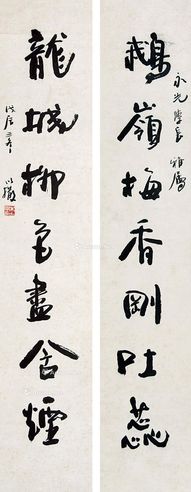 永光學長 雅屬
鵝嶺梅香剛吐蕊
龍城柳色盡含煙